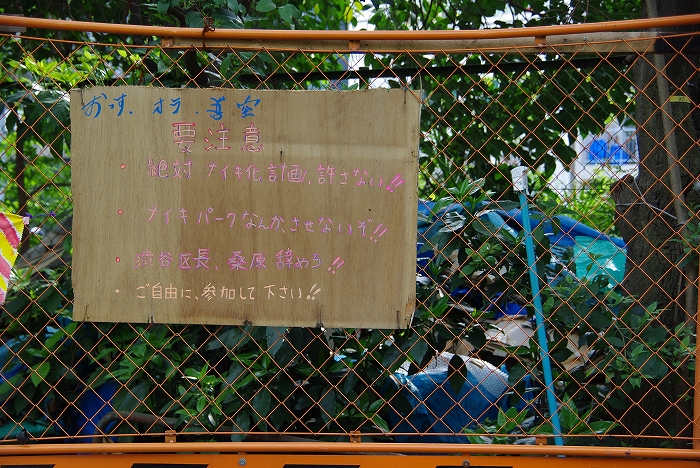 おす、オラ、善空
要注意
・絶対ナイキ化計画、許さない!!
・ナイキパークなんか、させないぞ!!
・渋谷区長、桑原辞めろ!!
・ご自由に、参加して下さい!!